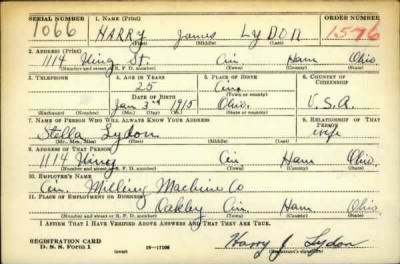 SERIAL NUMBER 1. NAME (Print) ORDER NUMBER
1066 HARRY James LYDON 1576
(First) (Middle) (Last)
2. ADDRESS (Print)
1114 Wing St. Cin Ham Ohio.
(Number and street or R. F. D. number) (Town) (County) (State)
3. TELEPHONE 4. AGE IN YEARS 5. PLACE OF BIRTH 6. COUNTRY OF CITIZENSHIP
25 Cin.
DATE OF BIRTH (Town or county)
Jan 3rd 1915 Ohio. U.S.A.
(Exchange) (Number) (Mo.) (Day) (Yr.) (State or country)
7. NAME OF PERSON WHO WILL ALWAYS KNOW YOUR ADDRESS 8. RELATIONSHIP OF THAT PERSON
Stella Lydon wife
(Mr., Mrs., Miss) (First) (Middle) (Last)
9. ADDRESS OF THAT PERSON
1114 Wing Cin Ham Ohio.
(Number and street or R. F. D. number) (Town) (County) (State)
10. EMPLOYER'S NAME
Cin. Milling Machine Co
11. PLACE OF EMPLOYMENT OR BUSINESS
Oakley Cin. Ham Ohio.
(Number and street or R. F. D. number) (Town) (County) (State)
I AFFIRM THAT I HAVE VERIFIED ABOVE ANSWERS AND THAT THEY ARE TRUE.
REGISTRATION CARD
D. S. S. Form 1 (over) 16—17105 Harry J. Lydon
(Registrant's signature)